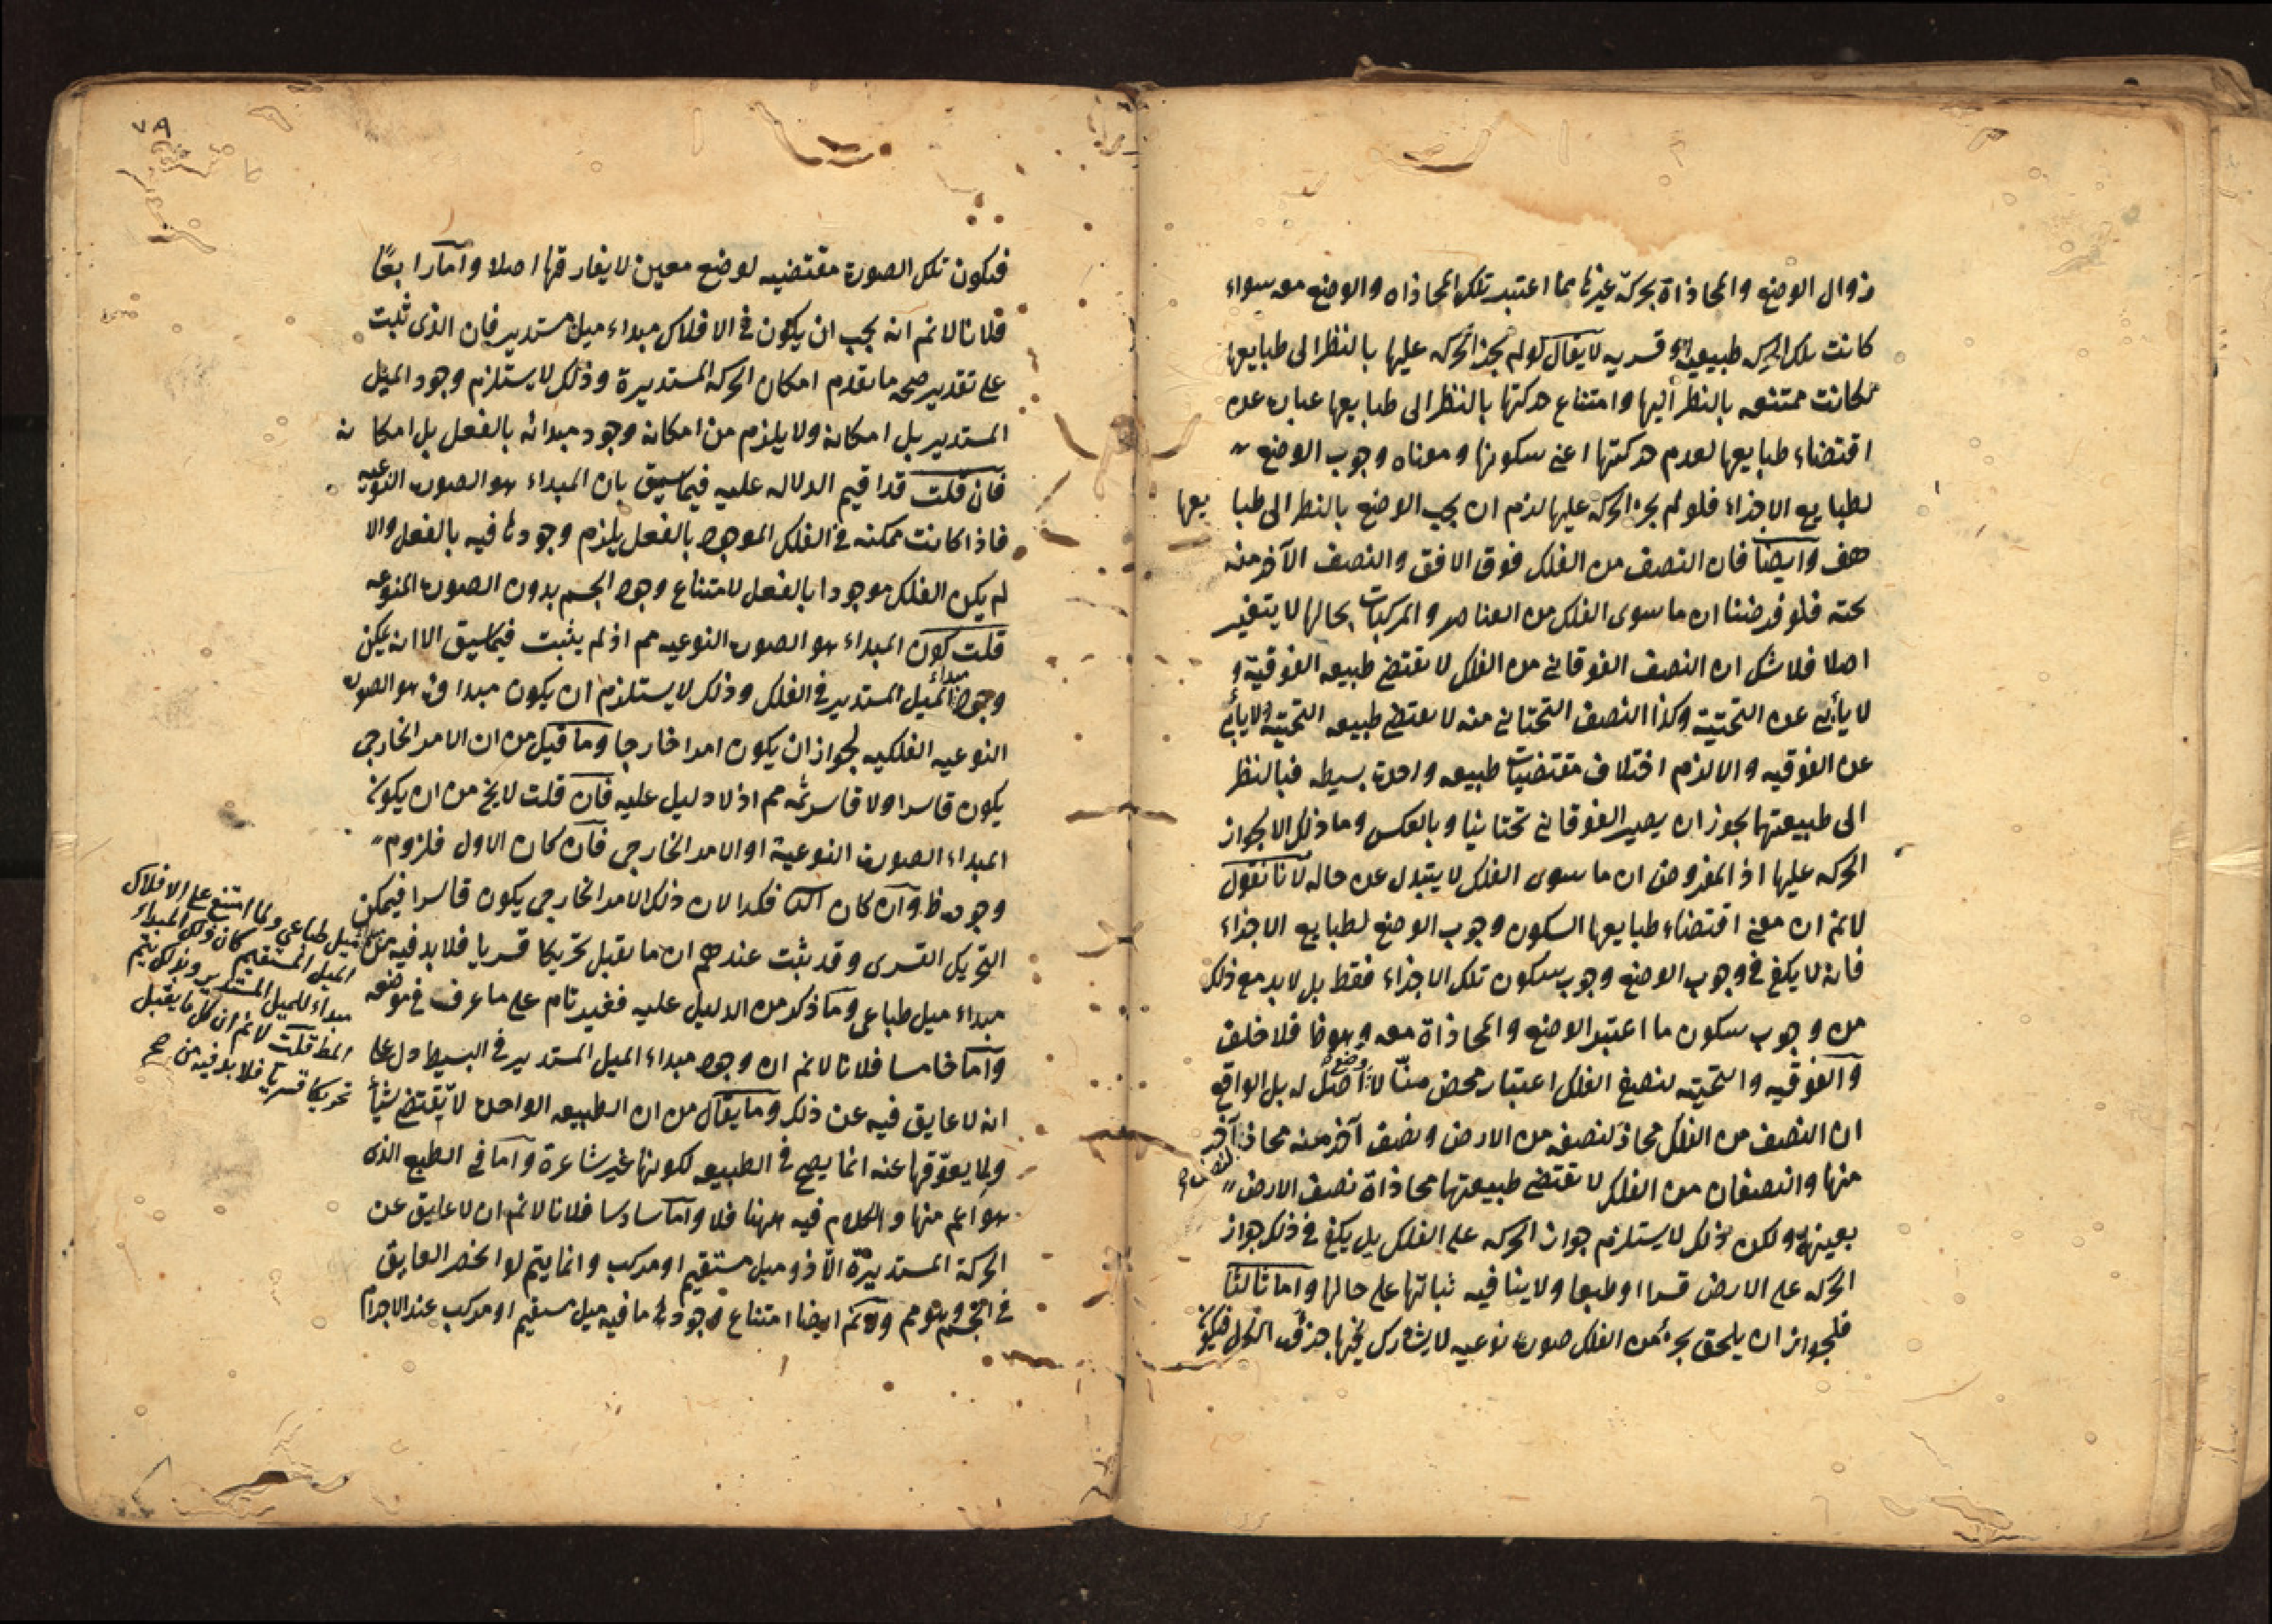 زوال الوضع والمحاذاة بحركة غيرها مما اعتبر تلك المحاذاه والوضع معه سواء
كانت تلك الحركه طبيعية او قسريه لا يقال لو لم يجز الحركه عليها بالنظر الى طبايعها
لكانت ممتنعه بالنظر اليها وامتناع حركتها بالنظر الى طبايعها عبارة عن
اقتضاء طبايعها لعدم حركتها اعنى سكونها ومعناه وجوب الوضع
لطبايع الاجزاء فلو لم يجز الحركه عليها لزم ان يجب الوضع بالنظر الى طبايعها
هف وايضا فان النصف من الفلك فوق الافق والنصف الآخر منه
تحته فلو فرضنا ان ما سوى الفلك من العناصر والمركبات بحالها لا يتغير
اصلا فلا شك ان النصف الفوقانى من الفلك لا تقتضى طبيعه الفوقية و
لا يأبى عن التحتية وكذا النصف التحتانى منه لا تقتضى طبيعه التحتية ولا يأبى
عن الفوقيه والا لزم اختلاف مقتضيات طبيعه واحدة بسيطه فبالنظر
الى طبيعتها يجوز ان يصير الفوقانى تحتانيا وبالعكس وما ذلك الا بجواز
الحركه عليها اذ المفروض ان ما سوى الفلك لا يتبدل عن حاله لانا نقول
لانم ان معنى اقتضاء طبايعها السكون وجوب الوضع لطبايع الاجزاء
فانه لا يكفى فى وجوب الوضع وجوب سكون تلك الاجزاء فقط بل لا بد مع ذلك
من وجوب سكون ما اعتبر الوضع والمحاذاة معه وهو فلا خلف
والفوقيه والتحتيه لنصفى الفلك اعتبار محض منّا لا اصل له بل الواقع
ان النصف من الفلك محاذ لنصف من الارض ونصف آخر منه محاذ لنصف آخر
منها والنصفان من الفلك لا تقتضى طبيعتها محاذاة نصف الارض
بعينها ولكن ذلك لا يستلزم جواز الحركه على الفلك بل يكفى فى ذلك جواز
الحركه على الارض قسرا او طبعا ولا ينافيه ثباتها على حالها واما ثالثا
فلجواز ان يلحق بجزء من الفلك صورة نوعيه لا يشارك فيها جزء الكل فيكون
٧٨
فيكون تلك الصورة مقتضيه لوضع معين لا يفارقها اصلا واما رابعًا
فلانا لانم انه يجب ان يكون فى الافلاك مبداء ميل مستدير فان الذى ثبت
على تقدير صحه ما تقدم امكان الحركه المستديرة وذلك لا يستلزم وجود الميل
المستدير بل امكانه ولا يلزم من امكانه وجود مبدائه بالفعل بل امكانه
فان قلت قد اقيم الدلاله عليه فيما سبق بان المبداء هو الصورة النوعيه
فاذا كانت ممكنه فى الفلك الموجود بالفعل يلزم وجودها فيه بالفعل والا
لم يكن الفلك موجودا بالفعل لامتناع وجود الجسم بدون الصورة المنوعه
قلت كون المبداء هو الصورة النوعيه مم اذ لم يثبت فيما سبق الا انه يمكن
وجود مبداء الميل المستدير فى الفلك وذلك لا يستلزم ان يكون مبداؤه هو الصورة
النوعيه الفلكيه لجواز ان يكون امرا خارجا وما قيل من ان الامر الخارجى
يكون قاسرا ولا قاسر ثمه مم اذ لا دليل عليه فان قلت لا يخ من ان يكون
المبداء الصورة النوعية او الامر الخارجى فان كان الاول فلزوم
وجوده ظ وان كان الثانى فكذا لان ذلك الامر الخارجى يكون قاسرا فيمكن
التحريك القسرى وقد ثبت عندهم ان ما يقبل تحريكا قسريا فلا بد فيه من
مبداء ميل طباعى وما ذكر من الدليل عليه فغير تام على ما عرف فى موضعه
واما خامسا فلانا لانم ان وجود مبداء الميل المستدير فى البسيط دل على
انه لا عايق فيه عن ذلك وما يقال من ان الطبيعه الواحدة لا تقتضى شيأ
ولما يعوّقها عنه انما يصح فى الطبيعه لكونها غير شاعرة واما فى الطبع الذى
هو اعم منها والكلام فيه ههنا فلا واما سادسا فلانا لانم ان لا عايق عن
الحركة المستديرة الا ذو ميل مستقيم او مركب وانما يتم لو انحصر العايق
فى الجسم وهو مم ولانم ايضا امتناع وجود ما فيه ميل مستقيم او مركب عند الاجرام
ميل طباعى ولما امتنع على الافلاك
الميل المستقيم كان ذلك المبداء
مبداء للميل المستدير وبذلك يتم
المط قلت لانم ان كل ما يقبل
تحريكا قسريا فلا بد فيه من صح